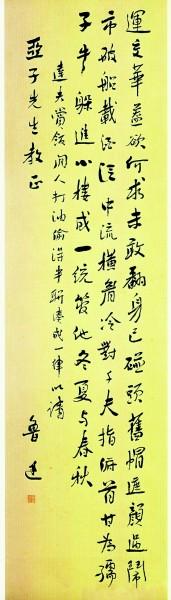 運交華蓋欲何求未敢翻身已碰頭舊帽遮顏過鬧
市破船載酒泛中流橫眉冷對千夫指俯首甘為孺
子牛躲進小樓成一統管他冬夏與春秋
達夫賞飯閑人打油偷得半聯湊成一律以請
亞子先生教正
魯迅